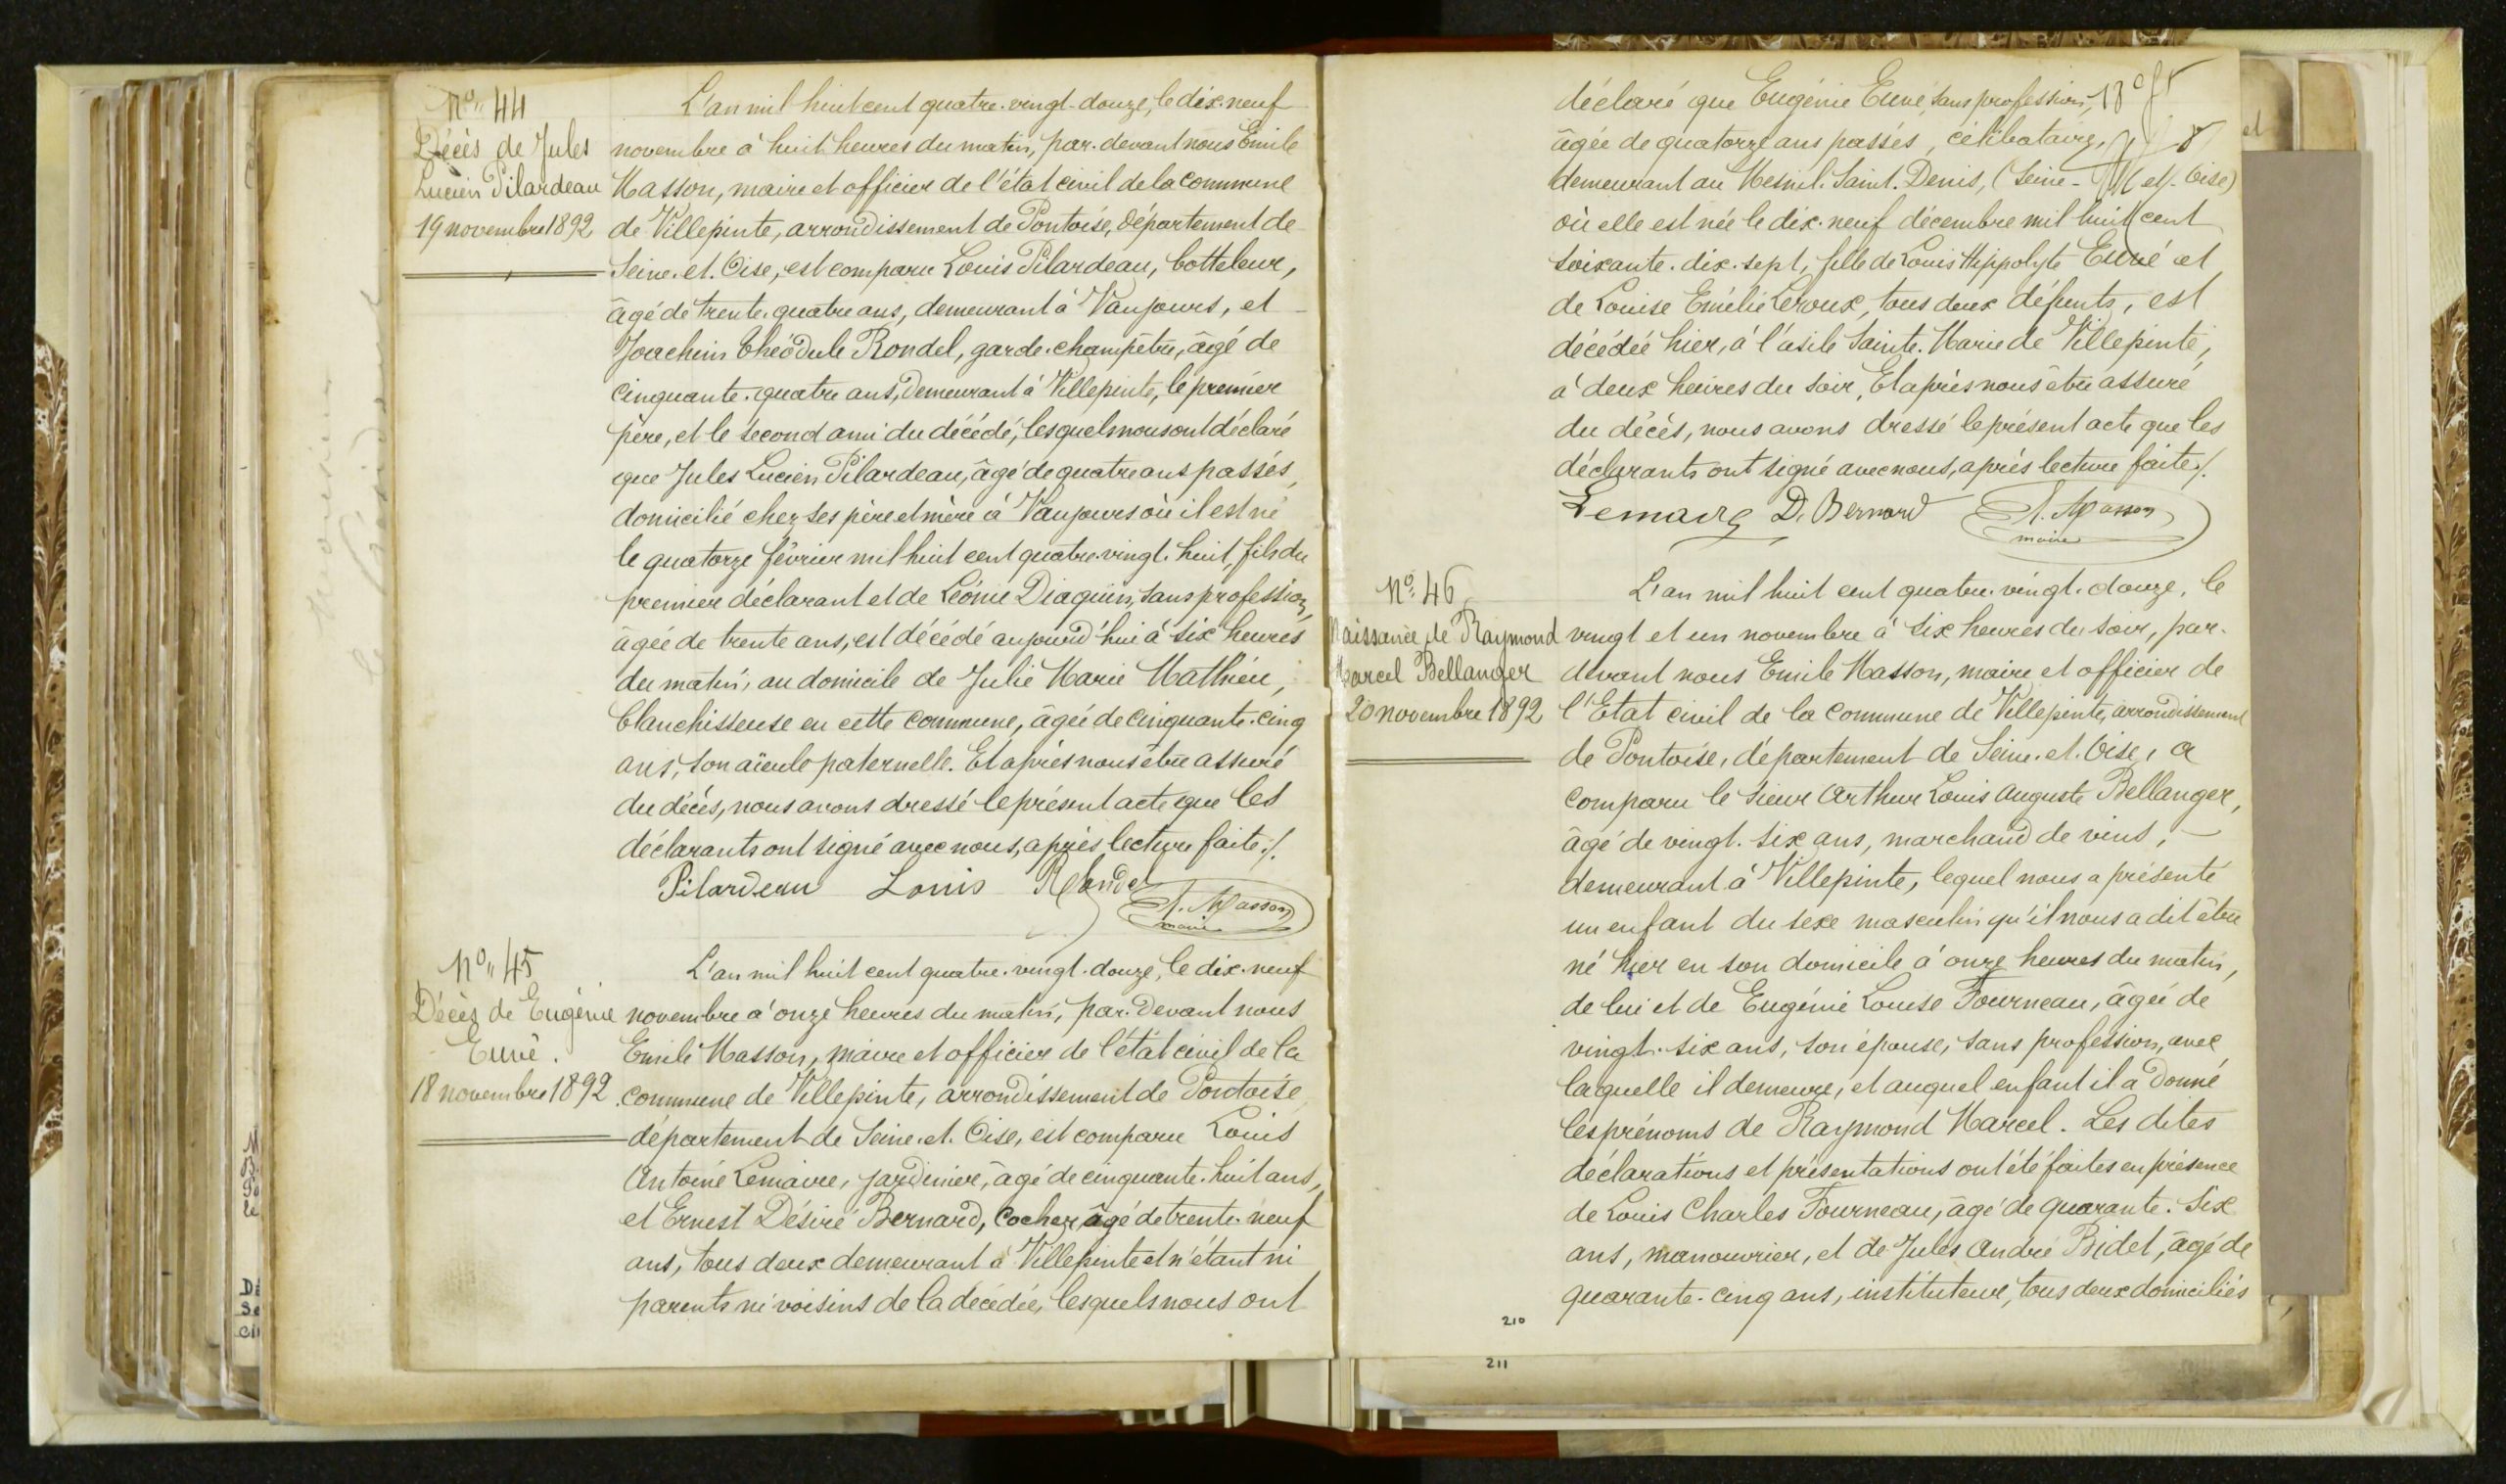 N° 44
Décès de Jules
Lucien Pilardeau
19 novembre 1892
L'an mil huit cent quatre-vingt-douze, le dix-neuf
novembre à huit heures du matin, par-devant nous Emile
Masson, maire et officier de l'état civil de la commune
de Villepinte, arrondissement de Pontoise, département de
Seine-et-Oise, est comparu Louis Pilardeau, botteleur,
âgé de trente-quatre ans, demeurant à Vaujours, et
Joachim Théodule Rondel, garde-champêtre, âgé de
cinquante-quatre ans, demeurant à Villepinte, le premier
père, et le second ami du décédé, lesquels nous ont déclaré
que Jules Lucien Pilardeau, âgé de quatre ans passés,
domicilié chez ses père et mère à Vaujours où il est né
le quatorze février mil huit cent quatre-vingt-huit, fils du
premier déclarant et de Léonie Diaquin, sans profession,
âgée de trente ans, est décédé aujourd'hui à six heures
du matin, au domicile de Julie Marie Mathieu,
blanchisseuse en cette commune, âgée de cinquante-cinq
ans, son aïeule paternelle. Et après nous être assuré
du décès, nous avons dressé le présent acte que les
déclarants ont signé avec nous, après lecture faite./.
Pilardeau Louis Rondel
E. Masson
maire
N° 45
Décès de Eugénie
Euvé.
18 novembre 1892
L'an mil huit cent quatre-vingt-douze, le dix-neuf
novembre à onze heures du matin, par-devant nous
Emile Masson, maire et officier de l'état civil de la
commune de Villepinte, arrondissement de Pontoise,
département de Seine-et-Oise, est comparu Louis
Antoine Lemaire, jardinier, âgé de cinquante-huit ans,
et Ernest Désiré Bernard, cocher, âgé de trente-neuf
ans, tous deux demeurant à Villepinte et n'étant ni
parents ni voisins de la décédée, lesquels nous ont
déclaré que Eugénie Euvé, sans profession,
âgée de quatorze ans passés, célibataire,
demeurant au Mesnil-Saint-Denis, (Seine-et-Oise)
où elle est née le dix-neuf décembre mil huit cent
soixante-dix-sept, fille de Louis Hippolyte Euvé et
de Louise Emélie Leroux, tous deux défunts, est
décédée hier, à l'asile Sainte-Marie de Villepinte,
à deux heures du soir, Et après nous être assuré
du décès, nous avons dressé le présent acte que les
déclarants ont signé avec nous, après lecture faite./.
Lemaire D. Bernard E. Masson
maire
N° 46
Naissance de Raymond
Marcel Bellanger
20 novembre 1892
L'an mil huit cent quatre-vingt-douze, le
vingt et un novembre à six heures du soir, par-
devant nous Emile Masson, maire et officier de
l'Etat civil de la commune de Villepinte, arrondissement
de Pontoise, département de Seine-et-Oise, a
comparu le sieur Arthur Louis Auguste Bellanger,
âgé de vingt-six ans, marchand de vins,
demeurant à Villepinte, lequel nous a présenté
un enfant du sexe masculin qu'il nous a dit être
né hier en son domicile à onze heures du matin,
de lui et de Eugénie Louise Fourneau, âgée de
vingt-six ans, son épouse, sans profession, avec
laquelle il demeure, et auquel enfant il a donné
les prénoms de Raymond Marcel. Les dites
déclarations et présentations ont été faites en présence
de Louis Charles Fourneau, âgé de quarante-six
ans, manouvrier, et de Jules André Bidet, âgé de
quarante-cinq ans, instituteur, tous deux domiciliés
210
211